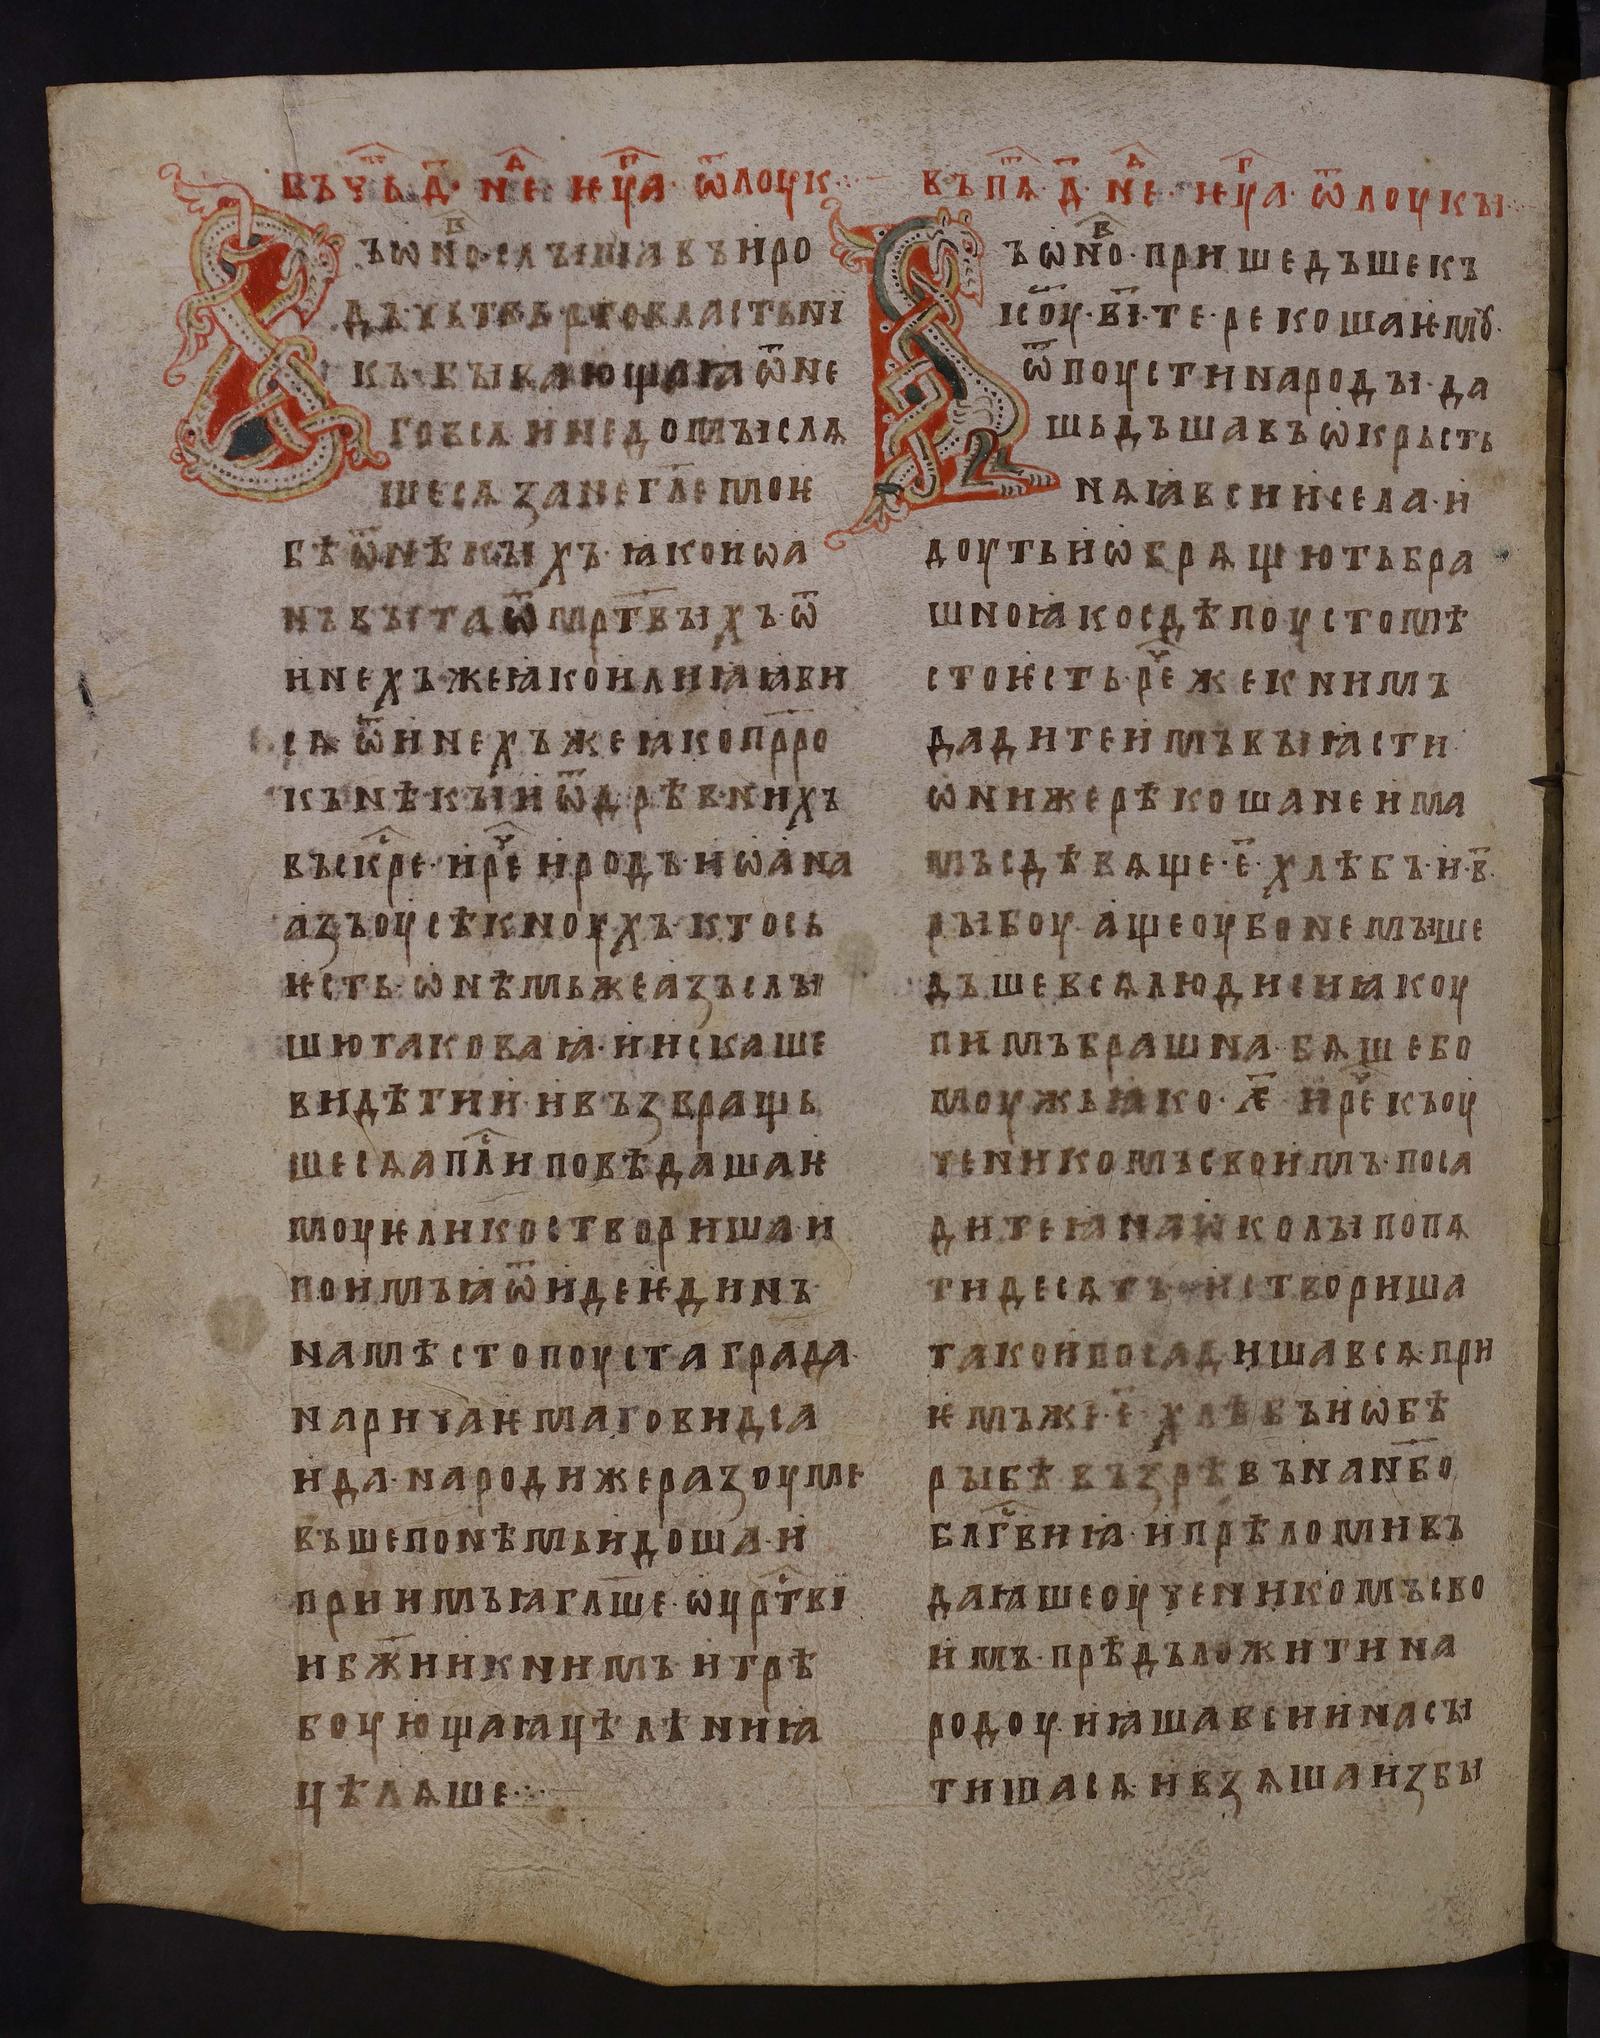 въ чь҃ д҃ не҃ д ѥу҃а г ѿ лоук
ъ ѡно в слышавъ иро
дъ чьтвьртовластьни
къ бывающаꙗ ѿ не
го всѧ и недомыслѧ
шесѧ зане гл҃емо ѥ
бѣ ѿ нѣкыхъ ꙗко иѡа
нъ въста ѿ мрт҃выхъ ѿ
инехъ же ꙗко илиꙗ ꙗви
сѧ ѿ инехъ же ꙗко прро҃
къ нѣкыи ѿ дрѣвнихъ
въскр҃се и реч҃ иродъ иѡана
азъ оусѣкноухъ кто сь
ѥсть ѡ нѣмьже азъ слы
шю таковаꙗ и искаше
видѣти и и възвращь
шесѧ апл҃си повѣдаша ѥ
моу ѥлико створиша и
поимъ ꙗ ѿиде ѥдинъ
на мѣсто поуста града
наричаѥмаго видса
ида народи же разоуме
въше по нѣмь идоша и
приимъ ꙗ глш҃е ѡ црт҃ви
и бж҃ии к нимъ и трѣ
боующаꙗ цѣлѣниꙗ
цѣлѧше
въ пѧ҃т д҃ не҃ д ѥу҃а г ѿ лоукы
ъ ѡно в пришедъше къ
ісоу҃ ві҃ те рекоша ѥмꙋ
ѿпоусти народы да
шьдъша въ ѡкрьсть
нѧꙗ вси и села и
доуть и ѡбрѧщють бра
шно ꙗко сдѣ поустомѣ
сто ѥсть реч҃ же к нимъ
дадите имъ вы ꙗсти
ѡни же рѣкоша не има
мъ сдѣ вѧще е҃ хлѣбъ и в҃
рыбоу аще оубо не мы ше
дъше всѧ люди сиꙗ коу
пимъ брашна бѧше бо
моужь ꙗко ҂е҃ и реч҃ къ оу
ченикомъ своимъ поса
дите ꙗ на ѡколы по пѧ
ти десѧтъ и створиша
тако и посадиша всѧ при
ѥмъ же е҃ хлѣбъ и ѡбѣ
рыбѣ възрѣвъ на нб҃о
блгс҃ви ꙗ и прѣломи въ
даꙗше оученикомъ сво
имъ прѣдъложити на
родоу и ꙗша вси и насы
тишасѧ и взѧша избы